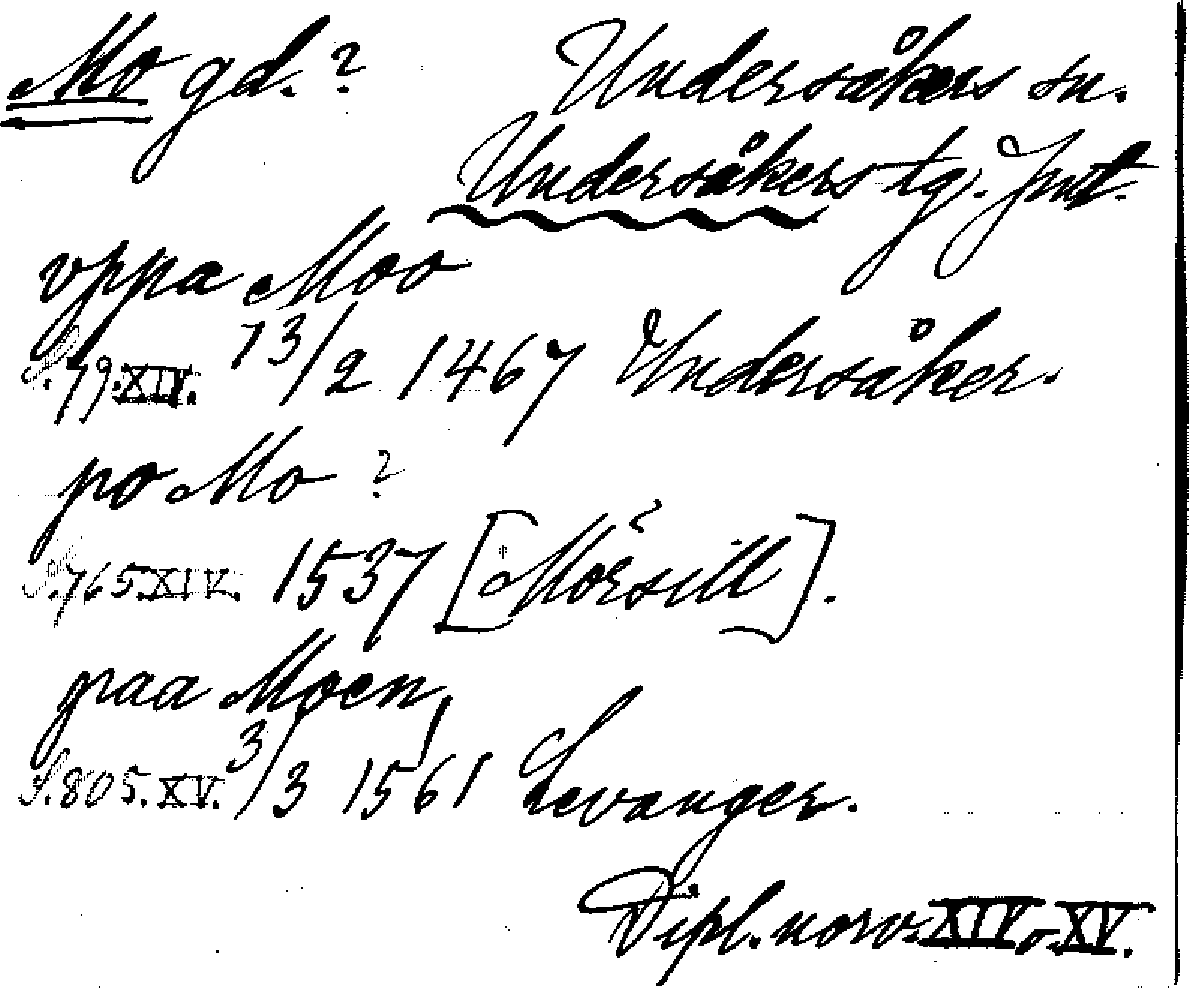 Mo gd.? Undersåkers sn.
Undersåkers tg. Jmt.
vppa Moo
S. 79. XIV. 13/2 1467 Undersåker.
po Mo ?
S. 765 XIV. 1537 [Mörsill].
paa Moen,
S. 805. XV. 3/3 1561 Levanger.
Dipl. norv. XIV o XV.